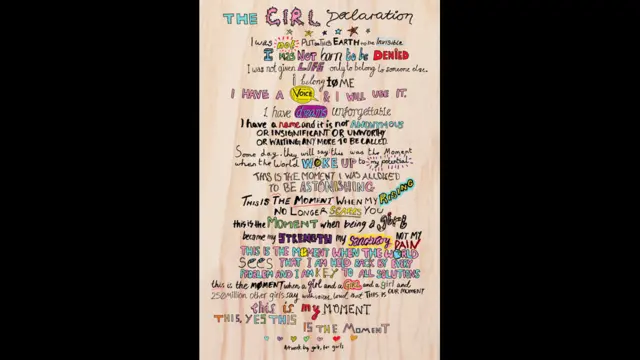 THE GIRL Declaration
I was not PUT on this EARTH to be Invisible.
I WAS NOT born to be DENIED
I was not given LIFE only to belong to someone else.
I belong to ME
I HAVE A VOICE & I WILL USE IT.
I have dreams unforgettable
I have a name and it is not ANONYMOUS
OR INSIGNIFICANT OR UNWORTHY
OR WAITING ANY MORE TO BE CALLED.
Some day, they will say: this was the Moment
when the World WOKE UP to my potential.
THIS IS THE MOMENT I WAS ALLOWED
TO BE ASTONISHING
THIS IS THE MOMENT WHEN MY RISING
NO LONGER SCARES YOU
this is the MOMENT when being a girl
became my STRENGTH my sanctuary NOT MY PAIN
THIS IS THE MOMENT WHEN THE WORLD
SEES THAT I AM HELD BACK BY EVERY
PROBLEM AND I AM KEY TO ALL SOLUTIONS
this is the MOMENT when a girl and a GIRL and a girl and
250 million other girls say with voices loud that THIS IS OUR MOMENT
this is my MOMENT
THIS, YES THIS
IS THE MOMENT
Artwork by girls, for girls